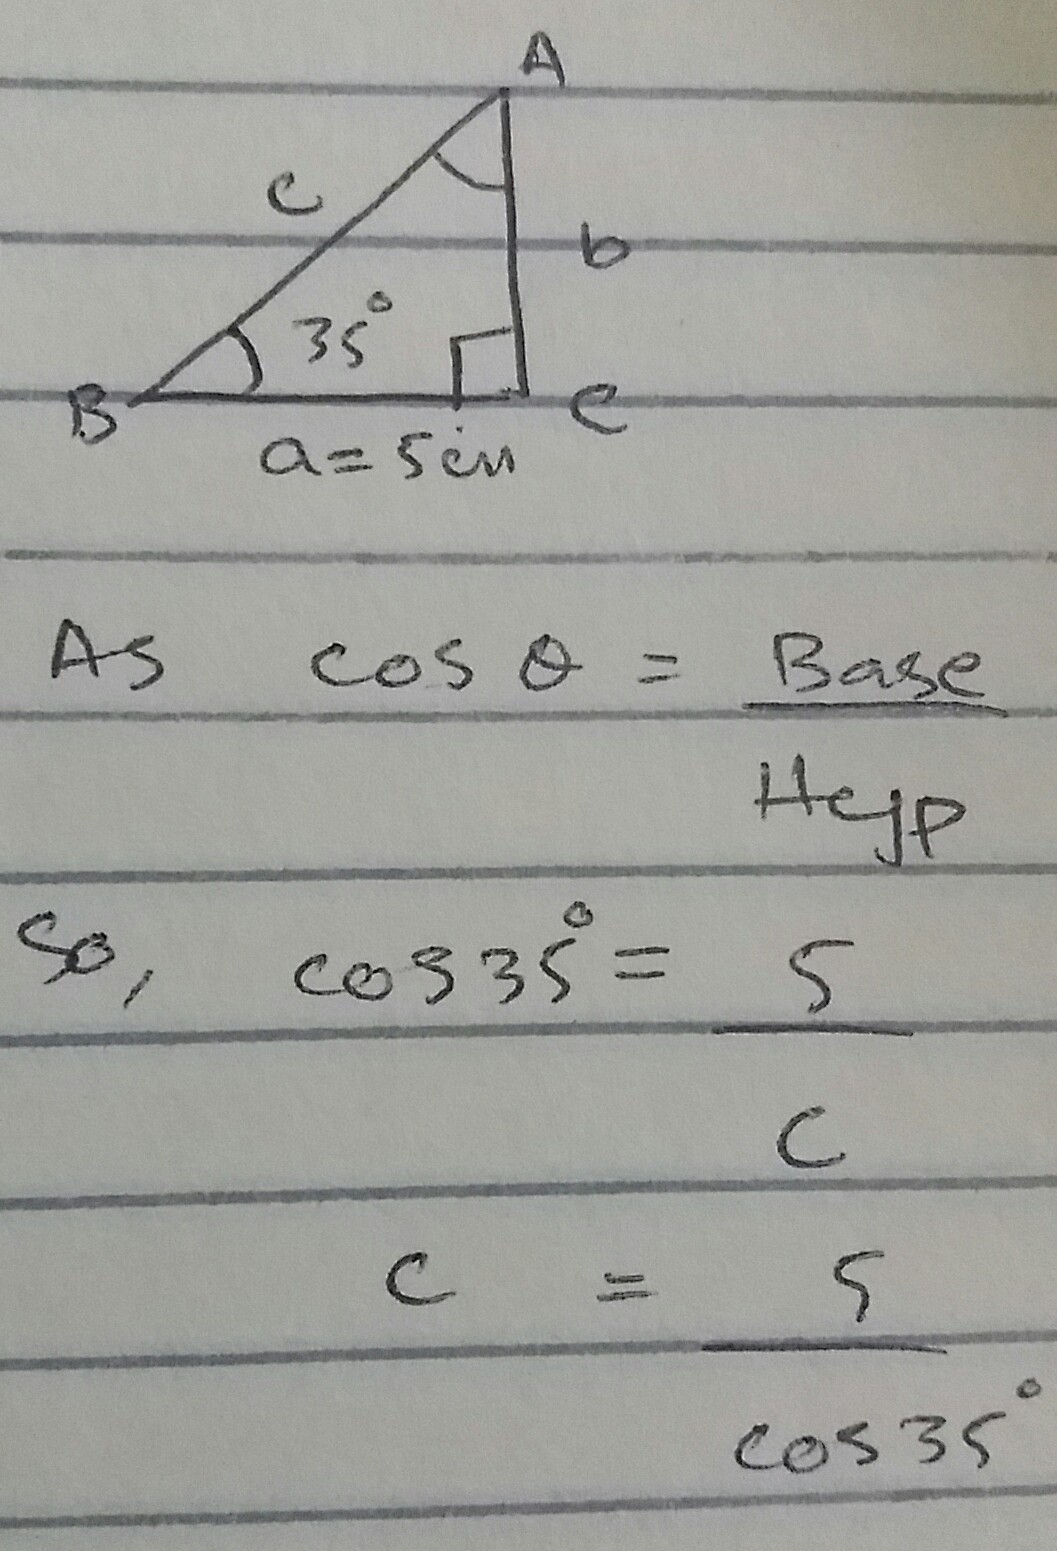 A
c
b
35°
B
C
a = 5cm
As cos θ = Base
Hyp
So, cos 35° = 5
c
c = 5
cos 35°